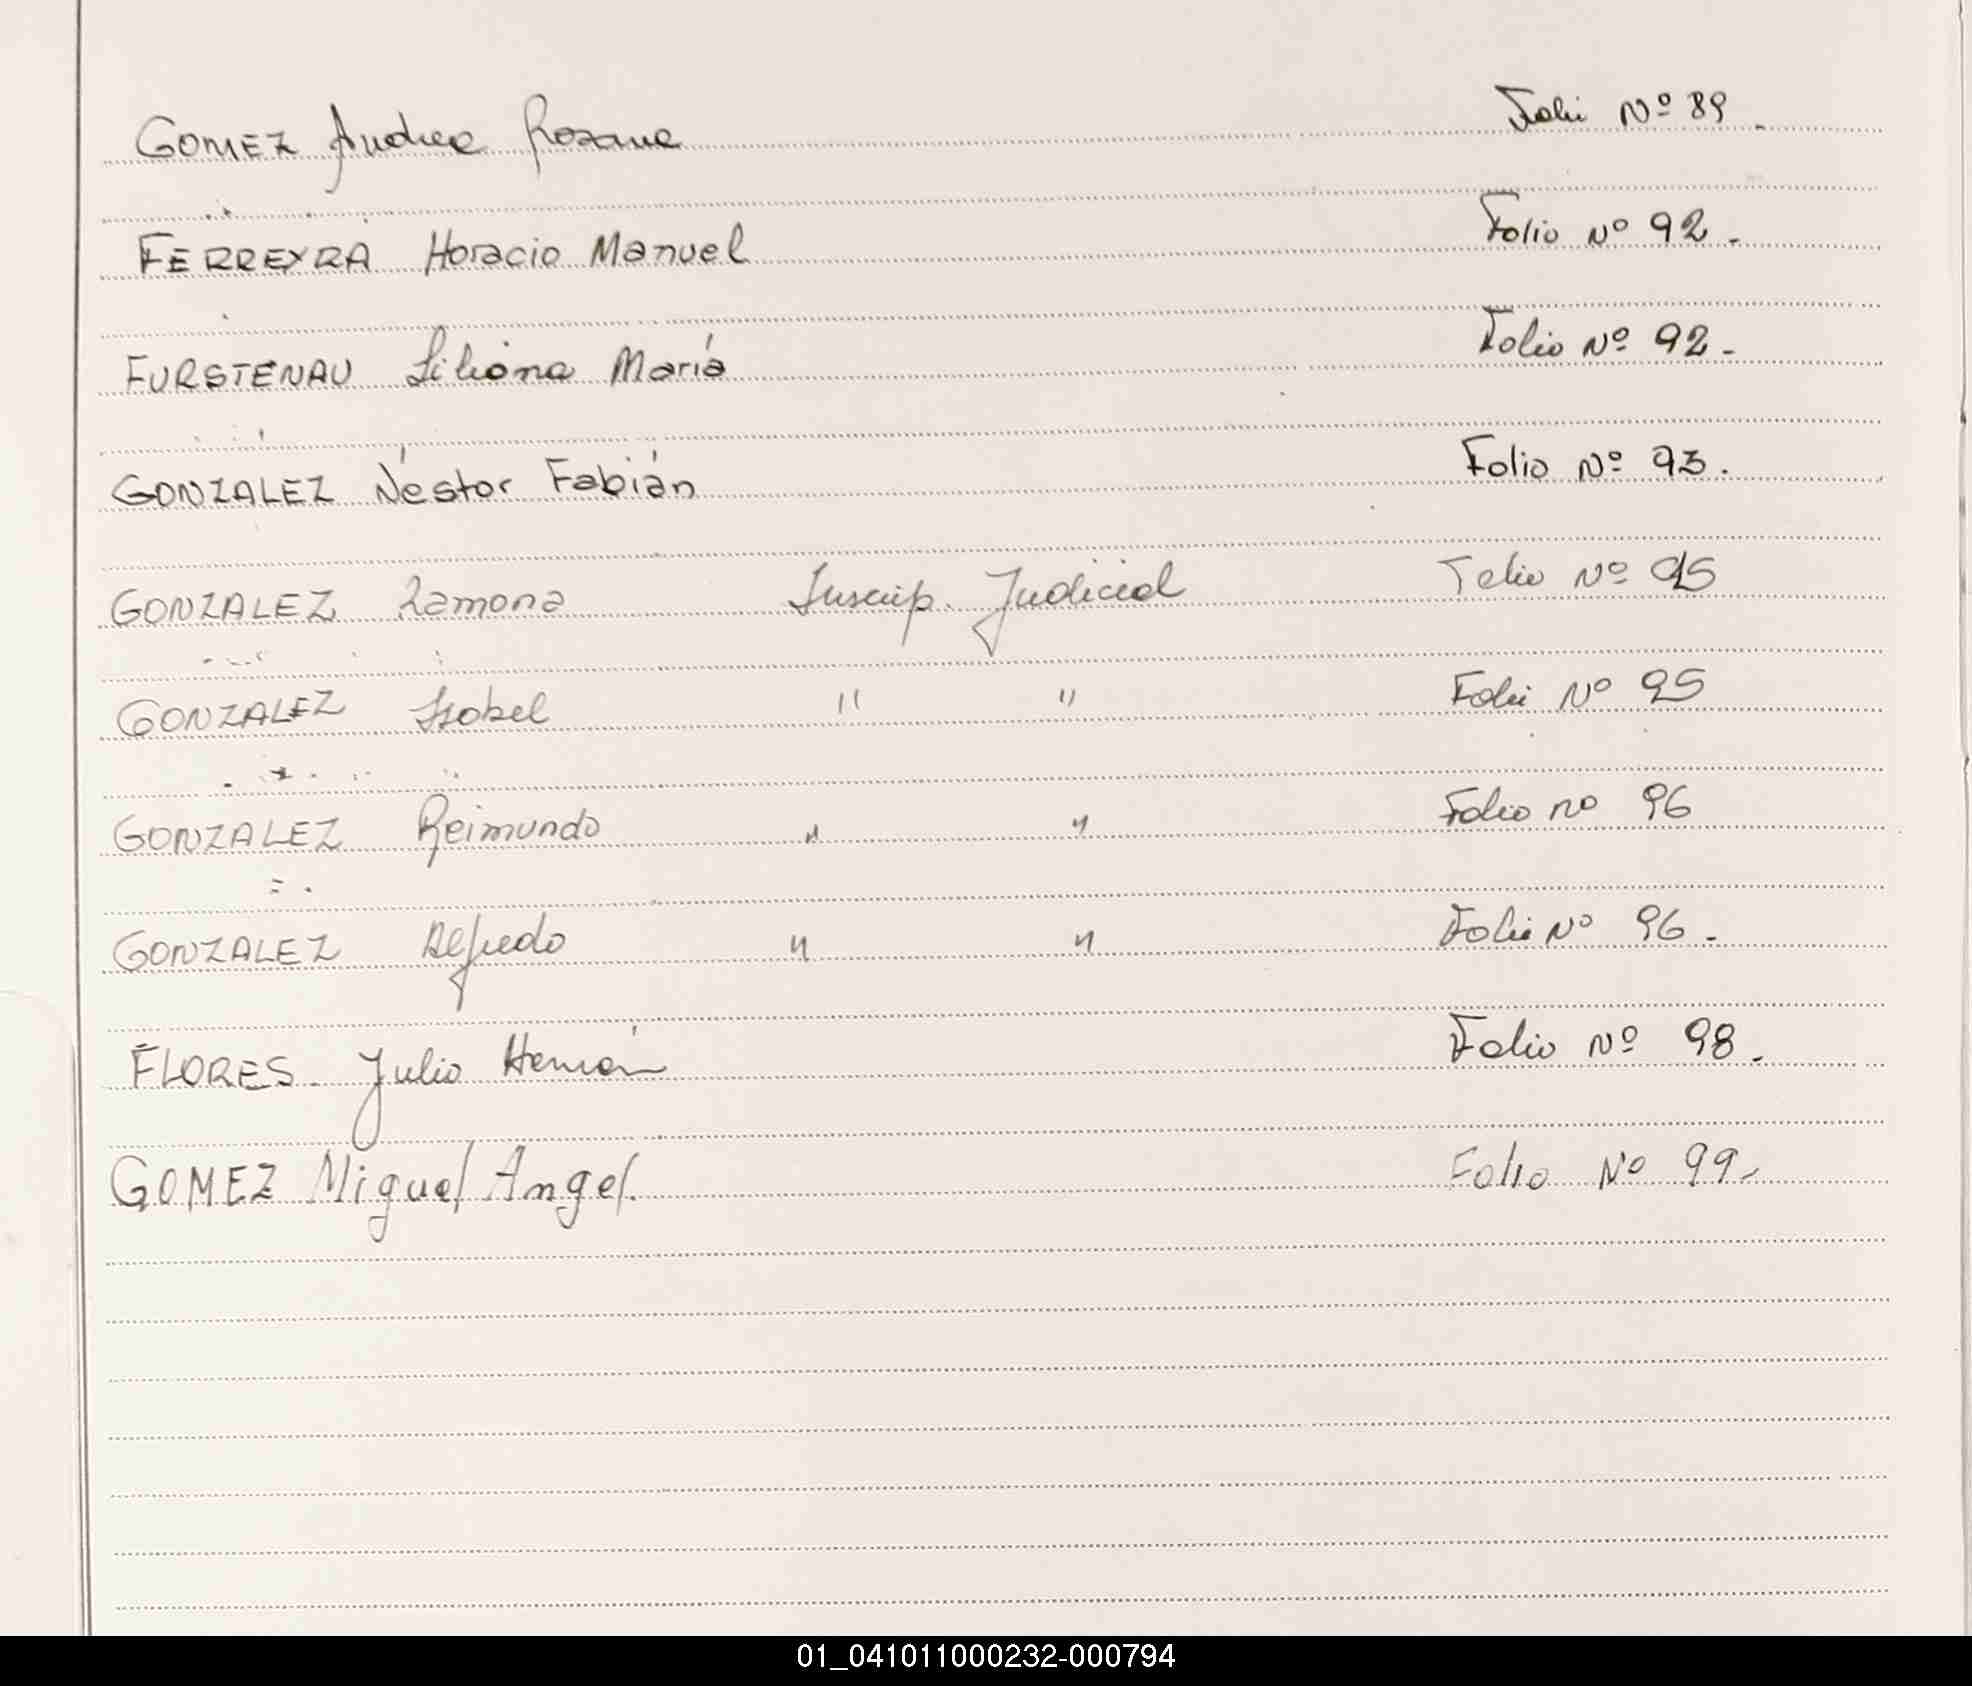 GOMEZ Andrea Rozana Folio Nº 89.
FERREYRA Horacio Manuel Folio Nº 92.-
FURSTENAU Liliana María Folio Nº 92.-
GONZALEZ Néstor Fabián Folio Nº 93.
GONZALEZ Ramona Inscrip. Judicial Folio Nº 95
GONZALEZ Isabel " " Folio Nº 95
GONZALEZ Reimundo " " Folio nº 96
GONZALEZ Alfredo " " Folio Nº 96.-
FLORES. Julio Hernán Folio Nº 98.
GOMEZ Miguel Angel. Folio Nº 99.-
01_041011000232-000794